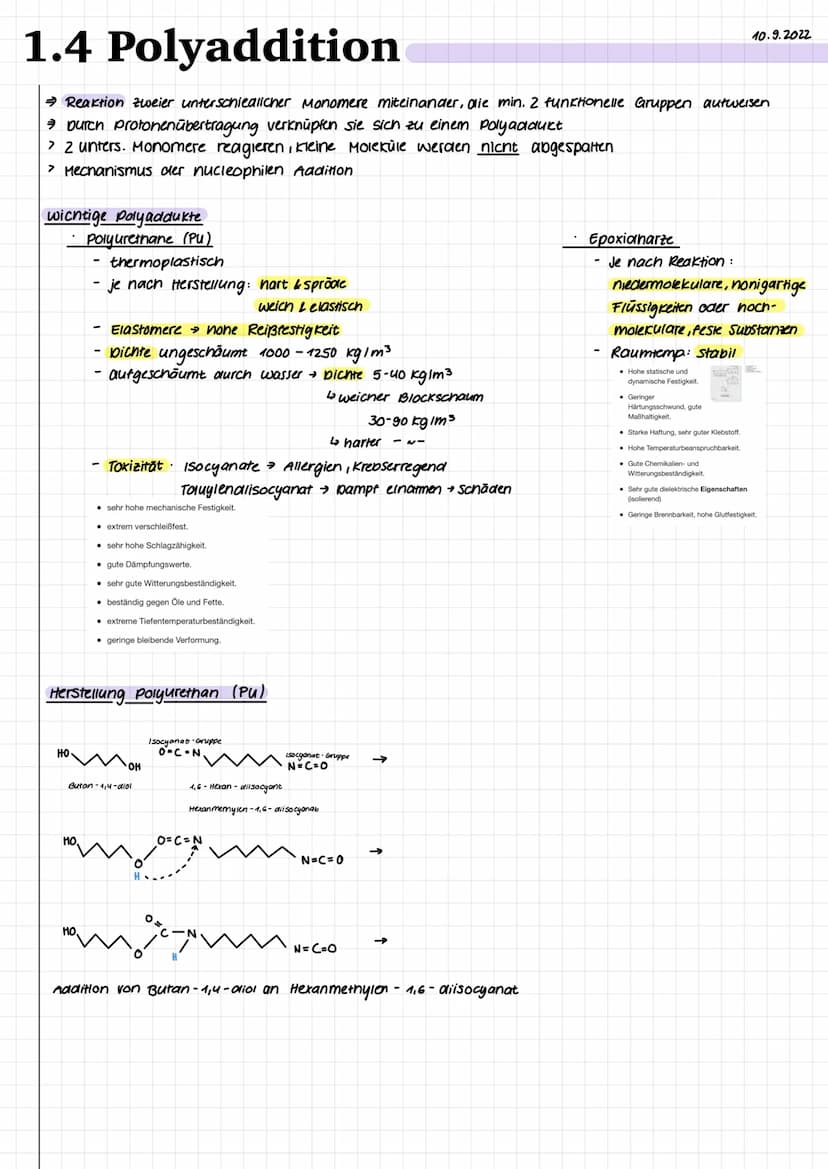 1.4 Polyaddition
10.9.2022
→ Reaktion zweier unterschiedlicher Monomere miteinander, die min. 2 funktionelle Gruppen aufweisen
→ Durch Protonenübertragung verknüpfen sie sich zu einem Polyaddukt
> 2 unters. Monomere reagieren, kleine Moleküle werden nicht abgespalten
> Mechanismus der nucleophilen Addition
Wichtige Polyaddukte
· Polyurethane (PU)
- thermoplastisch
- je nach Herstellung: hart & spröde
weich & elastisch
- Elastomere → hohe Reißfestigkeit
- Dichte ungeschäumt 1000 - 1250 kg/m³
- aufgeschäumt durch Wasser → Dichte 5-40 kg/m³
↳ weicher Blockschaum
30-90 kg/m³
↳ harter -~-
- Toxizität · Isocyanate → Allergien, Krebserregend
Toluylendiisocyanat → Dampf einatmen → Schäden
• sehr hohe mechanische Festigkeit.
• extrem verschleißfest.
• sehr hohe Schlagzähigkeit.
• gute Dämpfungswerte.
• sehr gute Witterungsbeständigkeit.
• beständig gegen Öle und Fette.
• extreme Tieftentemperaturbeständigkeit.
• geringe bleibende Verformung.
· Epoxidharze
- Je nach Reaktion:
niedermolekulare, honigartige
Flüssigkeiten oder hoch-
molekulare, feste Substanzen
- Raumtemp: stabil
• Hohe statische und
dynamische Festigkeit.
• Geringer
Härtungsschwund, gute
Maßhaltigkeit.
• Starke Haftung, sehr guter Klebstoff.
• Hohe Temperaturbeanspruchbarkeit.
• Gute Chemikalien- und
Witterungsbeständigkeit.
• Sehr gute dielektrische Eigenschaften
(isolierend)
• Geringe Brennbarkeit, hohe Glutfestigkeit.
Herstellung Polyurethan (PU)
Isocyanat-Gruppe
HO OH O=C=N Isocyanat-Gruppe
N=C=O →
Butan-1,4-diol 1,6-Hexan-diisocyant
Hexanmethylen-1,6-diisocyanat
HO O=C=N
O N=C=O →
H
O
HO C-N
O H N=C=O →
Addition von Butan-1,4-diol an Hexanmethylen-1,6-diisocyanat